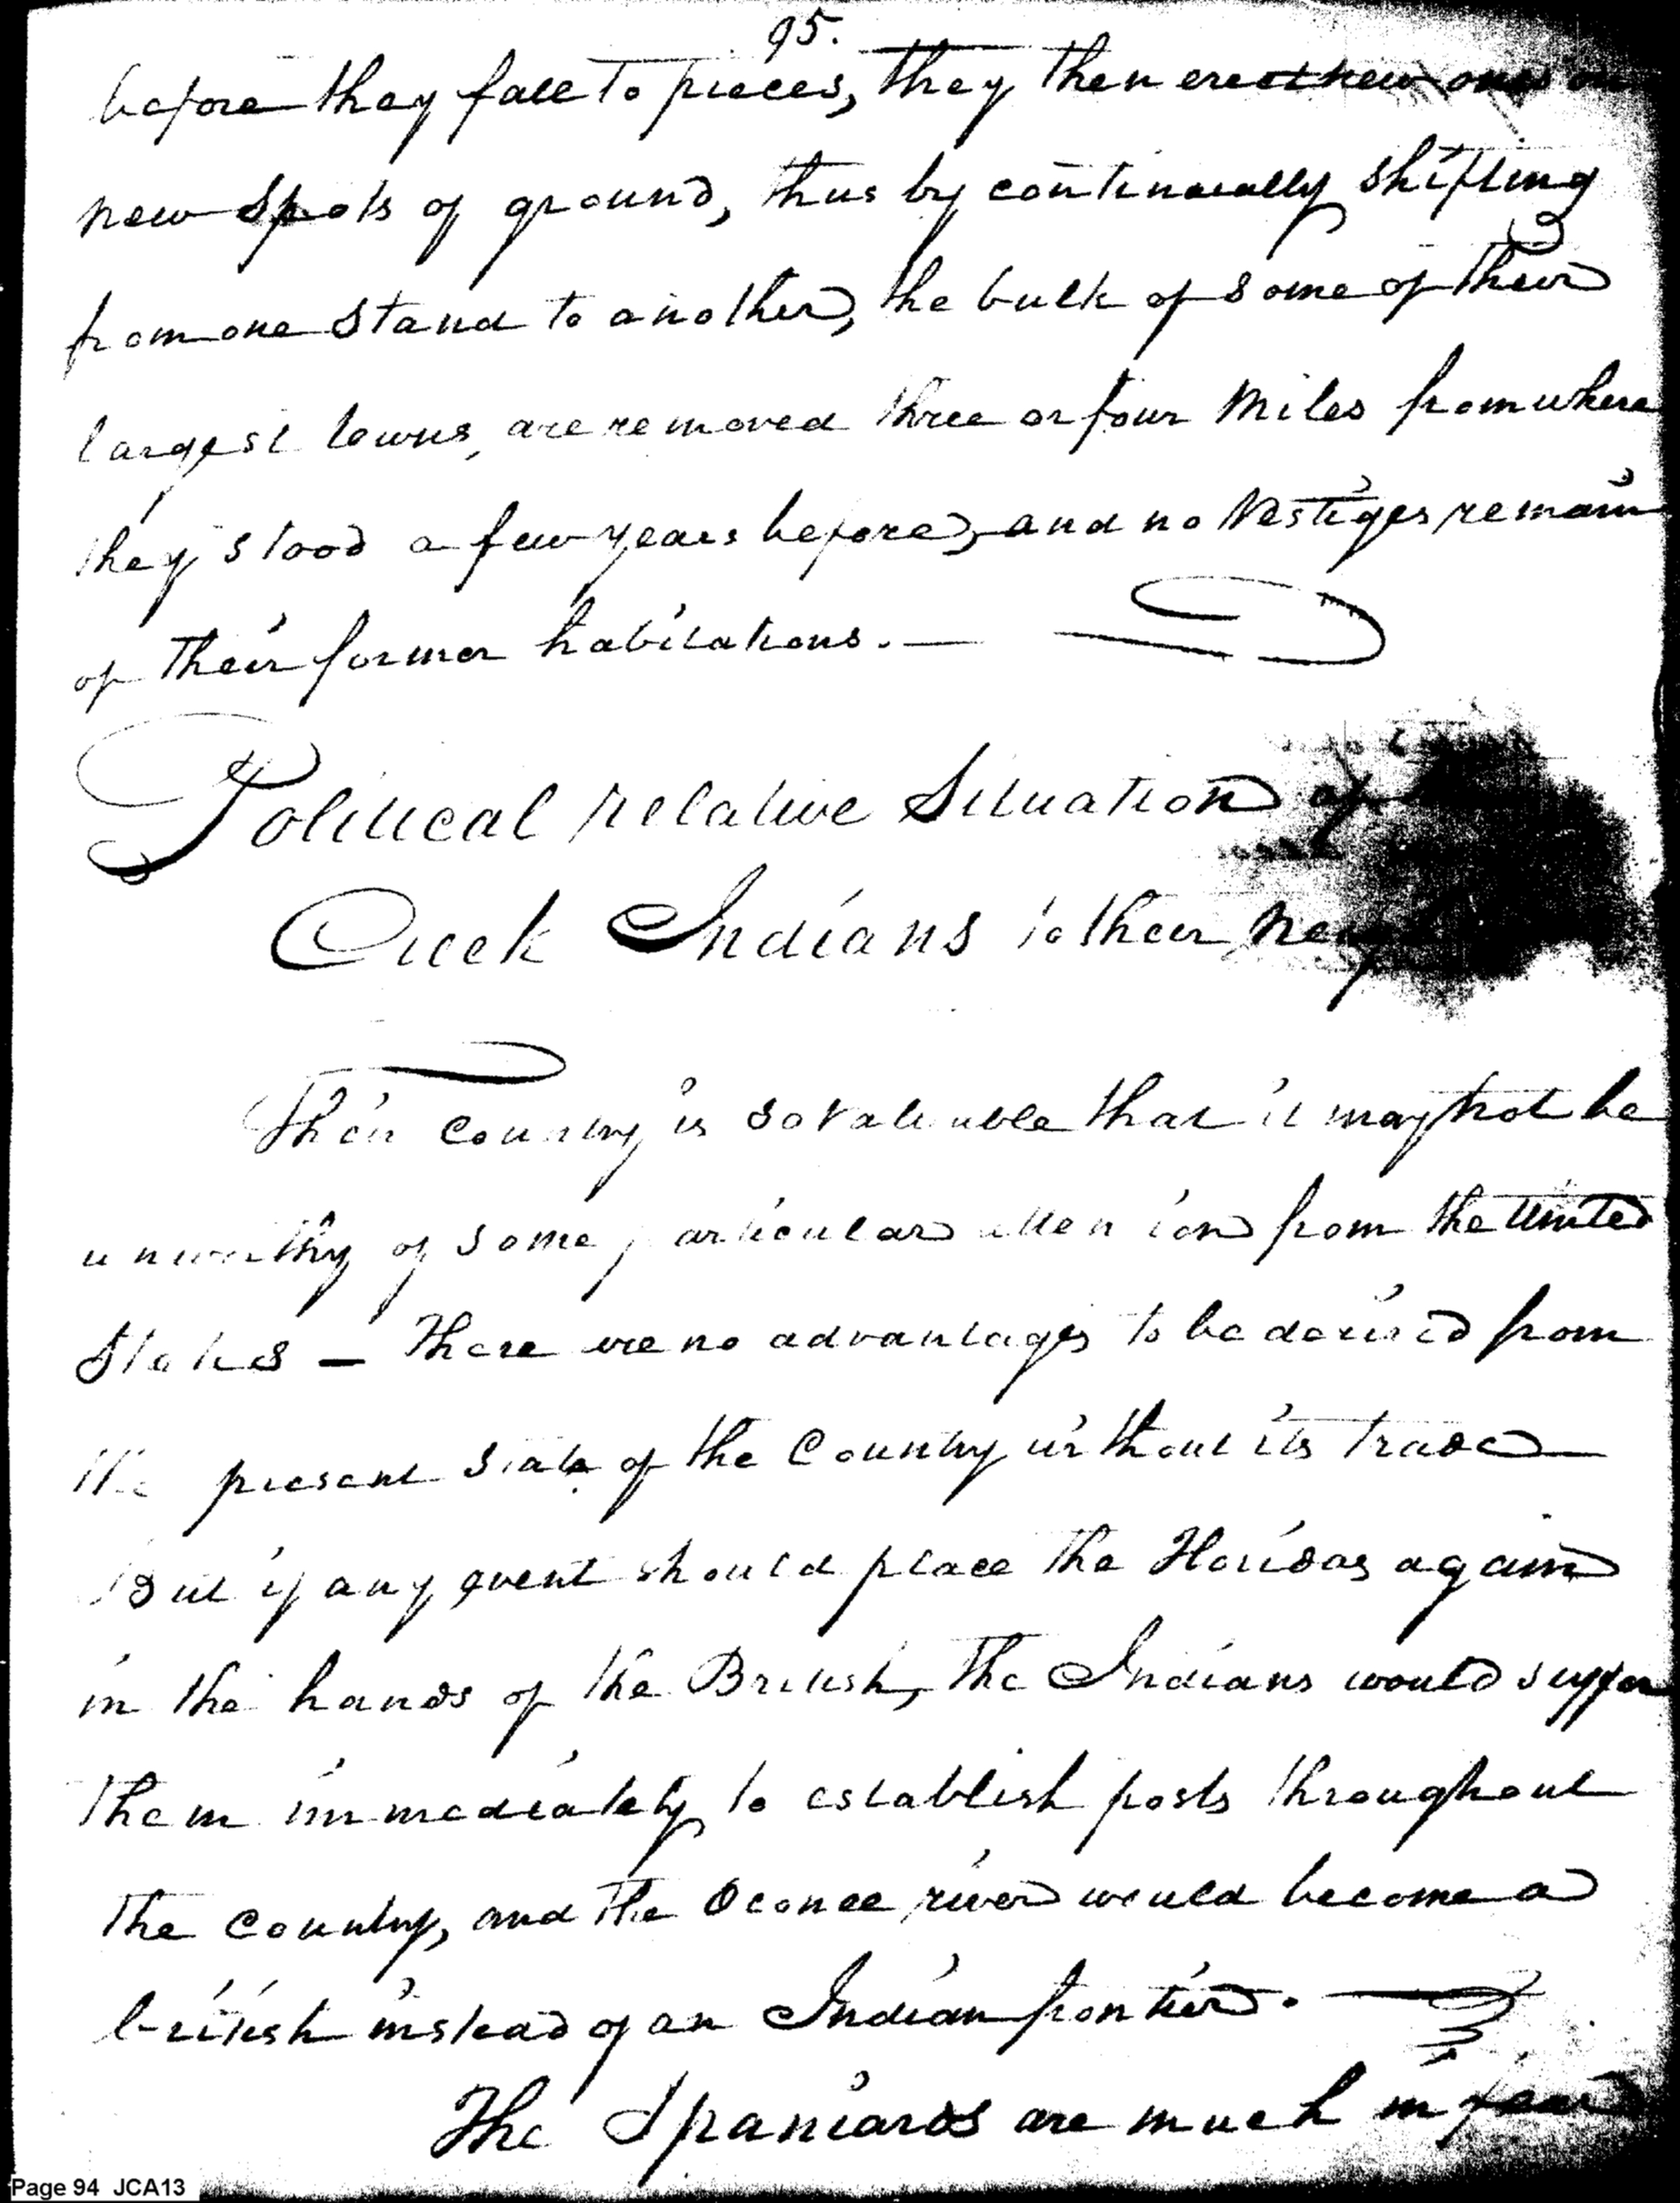 95.
before they fall to pieces, they then erect new ones on
new Spots of ground, thus by continually shifting
from one Stand to another, the bulk of some of their
largest towns, are removed three or four Miles from where
they stood a few years before, and no Vestiges remain
of their former habitations. —
Political relative Situation of
Creek Indians to their
Their Country is so Valuable that it may not be
unworthy of some particular attention from the United
States — There are no advantages to be derived from
the present State of the Country without its trade
But if any event should place the Floridas again
in the hands of the British, The Indians would suffer
them immediately to establish posts throughout
The Country, and the Oconee river would become a
british instead of an Indian frontier. —
The Spaniards are much in fear
Page 94 JCA13